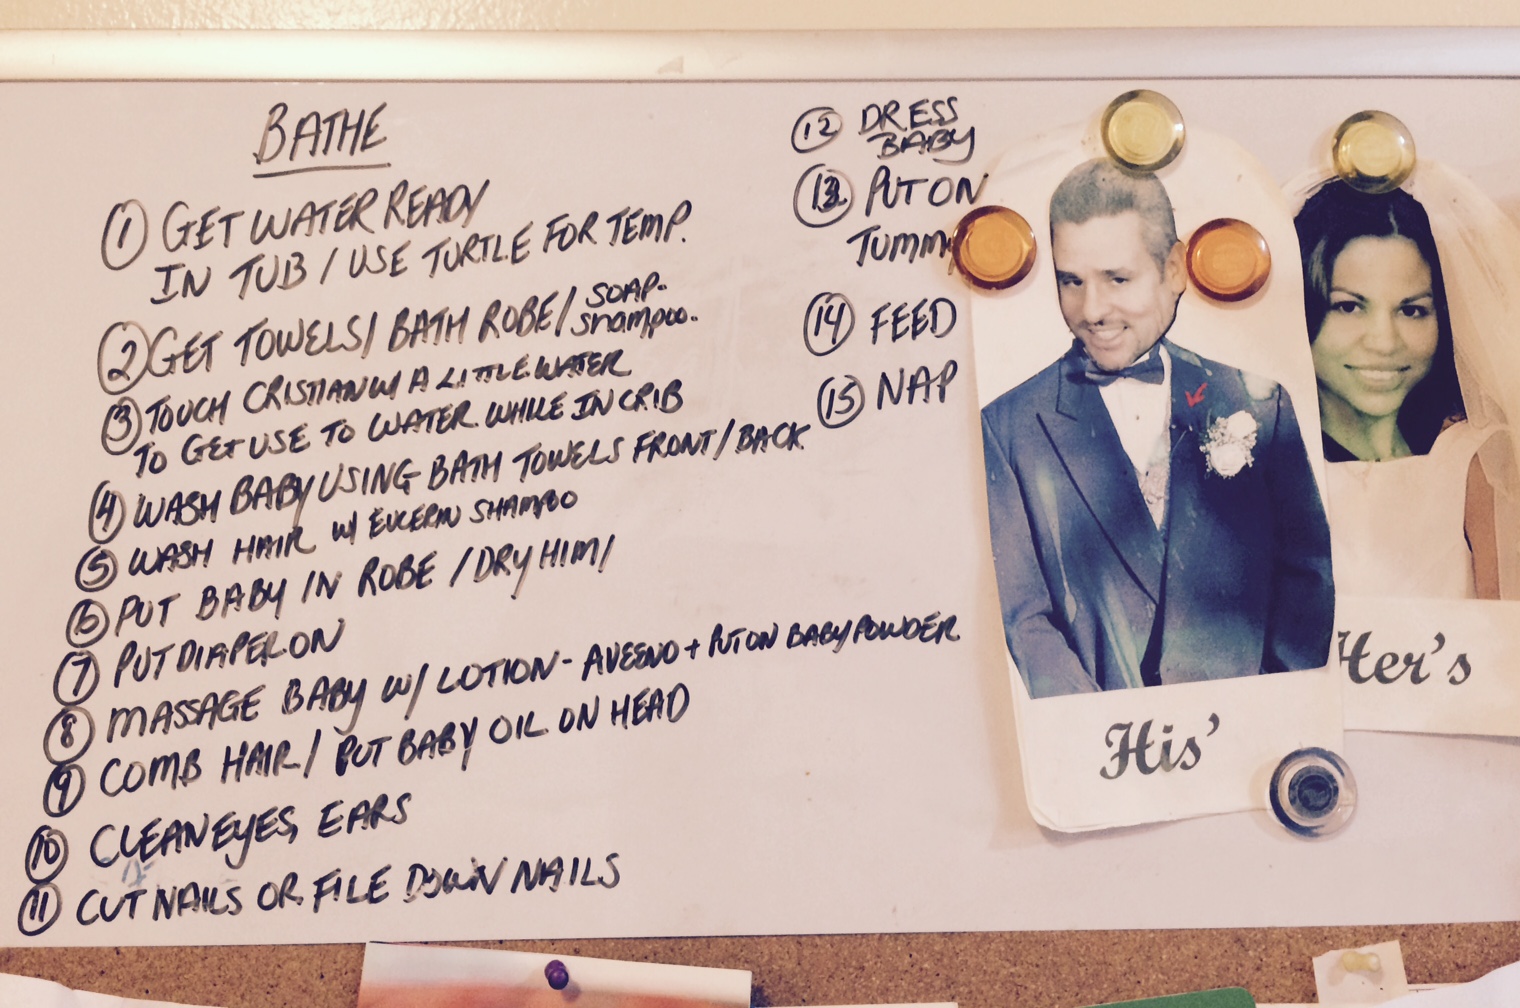 BATHE
① GET WATER READY
IN TUB / USE TURTLE FOR TEMP.
② GET TOWELS / BATH ROBE / SOAP-
Shampoo.
③ TOUCH CRISTIAN W/ A LITTLE WATER
TO GET USE TO WATER WHILE IN CRIB
④ WASH BABY USING BATH TOWELS FRONT / BACK
⑤ WASH HAIR W/ EUCERIN SHAMPOO
⑥ PUT BABY IN ROBE / DRY HIM /
⑦ PUT DIAPER ON
⑧ MASSAGE BABY W/ LOTION - AVEENO + PUT ON BABY POWDER
⑨ COMB HAIR / PUT BABY OIL ON HEAD
⑩ CLEAN EYES, EARS
⑪ CUT NAILS OR FILE DOWN NAILS
⑫ DRESS
BABY
⑬ PUT ON
TUMMY
⑭ FEED
⑮ NAP
His'
Her's